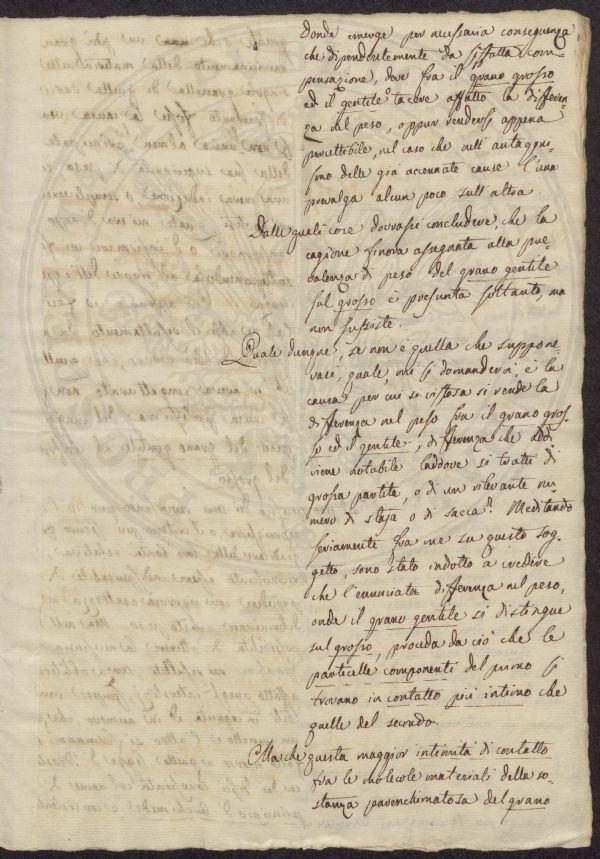 donde emerge per necessaria conseguenza
che dipendentemente da siffatta com-
pensazione, deve fra il grano grosso
ed il gentile tacere affatto la differen-
za nel peso, oppur rendersi appena
percettibile, nel caso che nell'antagoni-
smo delle già accennate cause l'una
prevalga alcun poco sull'altra.
Dalle quali cose dovrassi concludere, che la
cagione finora assegnata alla pre-
valenza di peso del grano gentile
sul grosso è presunta soltanto, ma
non sussiste.
Quale dunque, se non è quella che suppone-
vasi, quale, mi si domanderà, è la
causa per cui sì vistosa si rende la
differenza nel peso fra il grano gros-
so ed il gentile, differenza che
viene notabile laddove si tratti di
grossa partita, o di un rilevante nu-
mero di staja o di sacca? Meditando
seriamente fra me su questo sog-
getto, sono stato indotto a credere
che l'enunciata differenza nel peso,
onde il grano gentile si distingue
sul grosso, proceda da ciò che le
particelle componenti del primo si
trovano in contatto più intimo che
quelle del secondo.
Ma che questa maggior intimità di contatto
fra le molecole materiali della so-
stanza parenchimatosa del grano